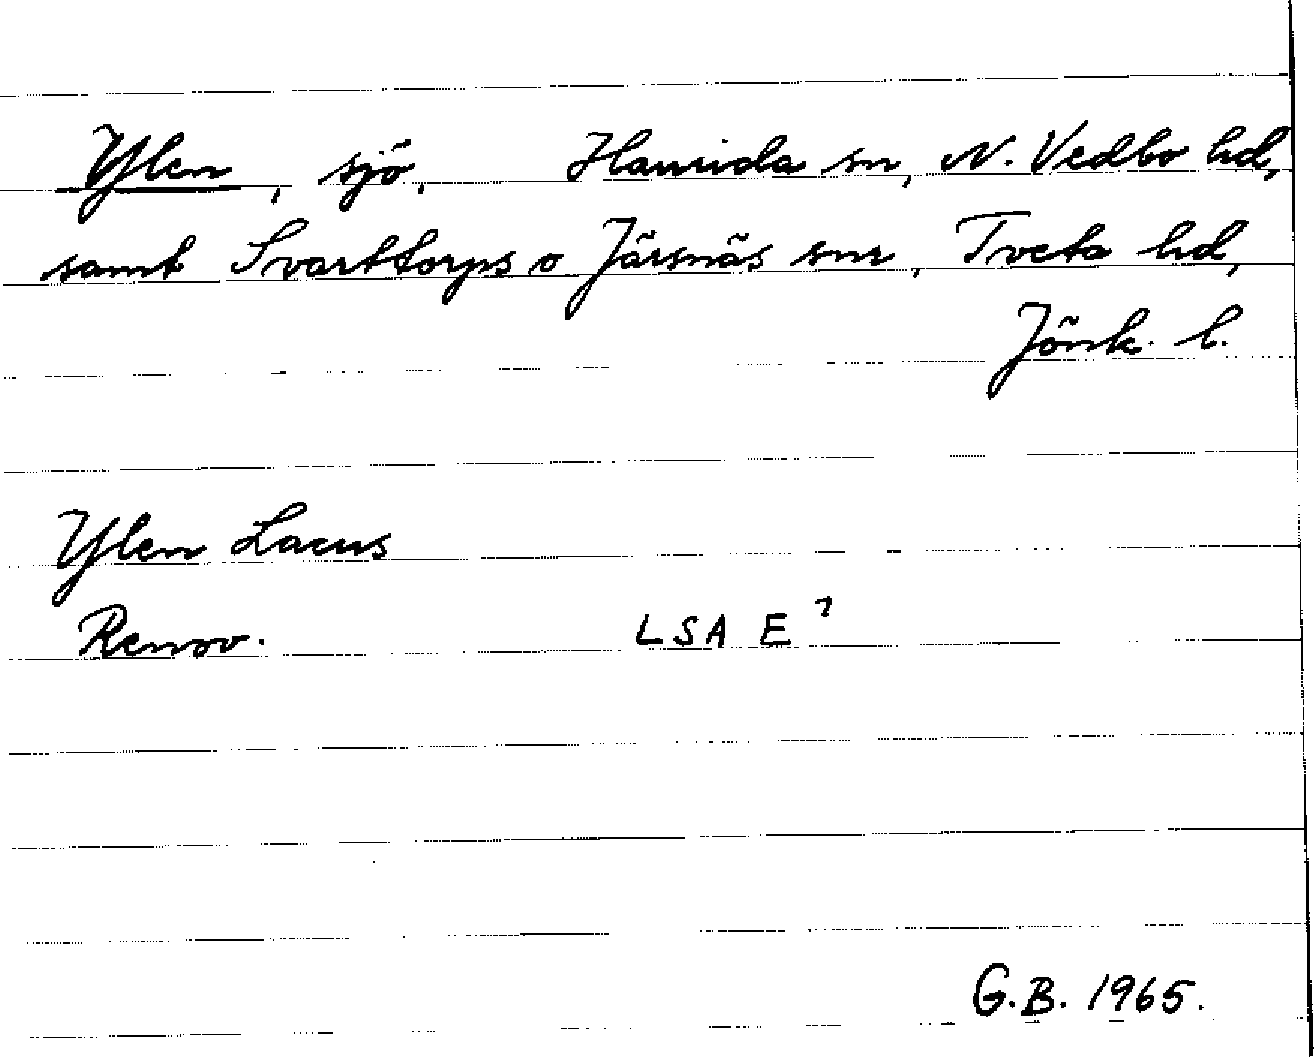 Ylen, sjö, Haurida sn, N. Vedbo hd,
samt Svarttorps o Järsnäs snr, Tveta hd,
Jönk. l.
Ylen Lacus
Renov. LSA E⁷
G.B. 1965.